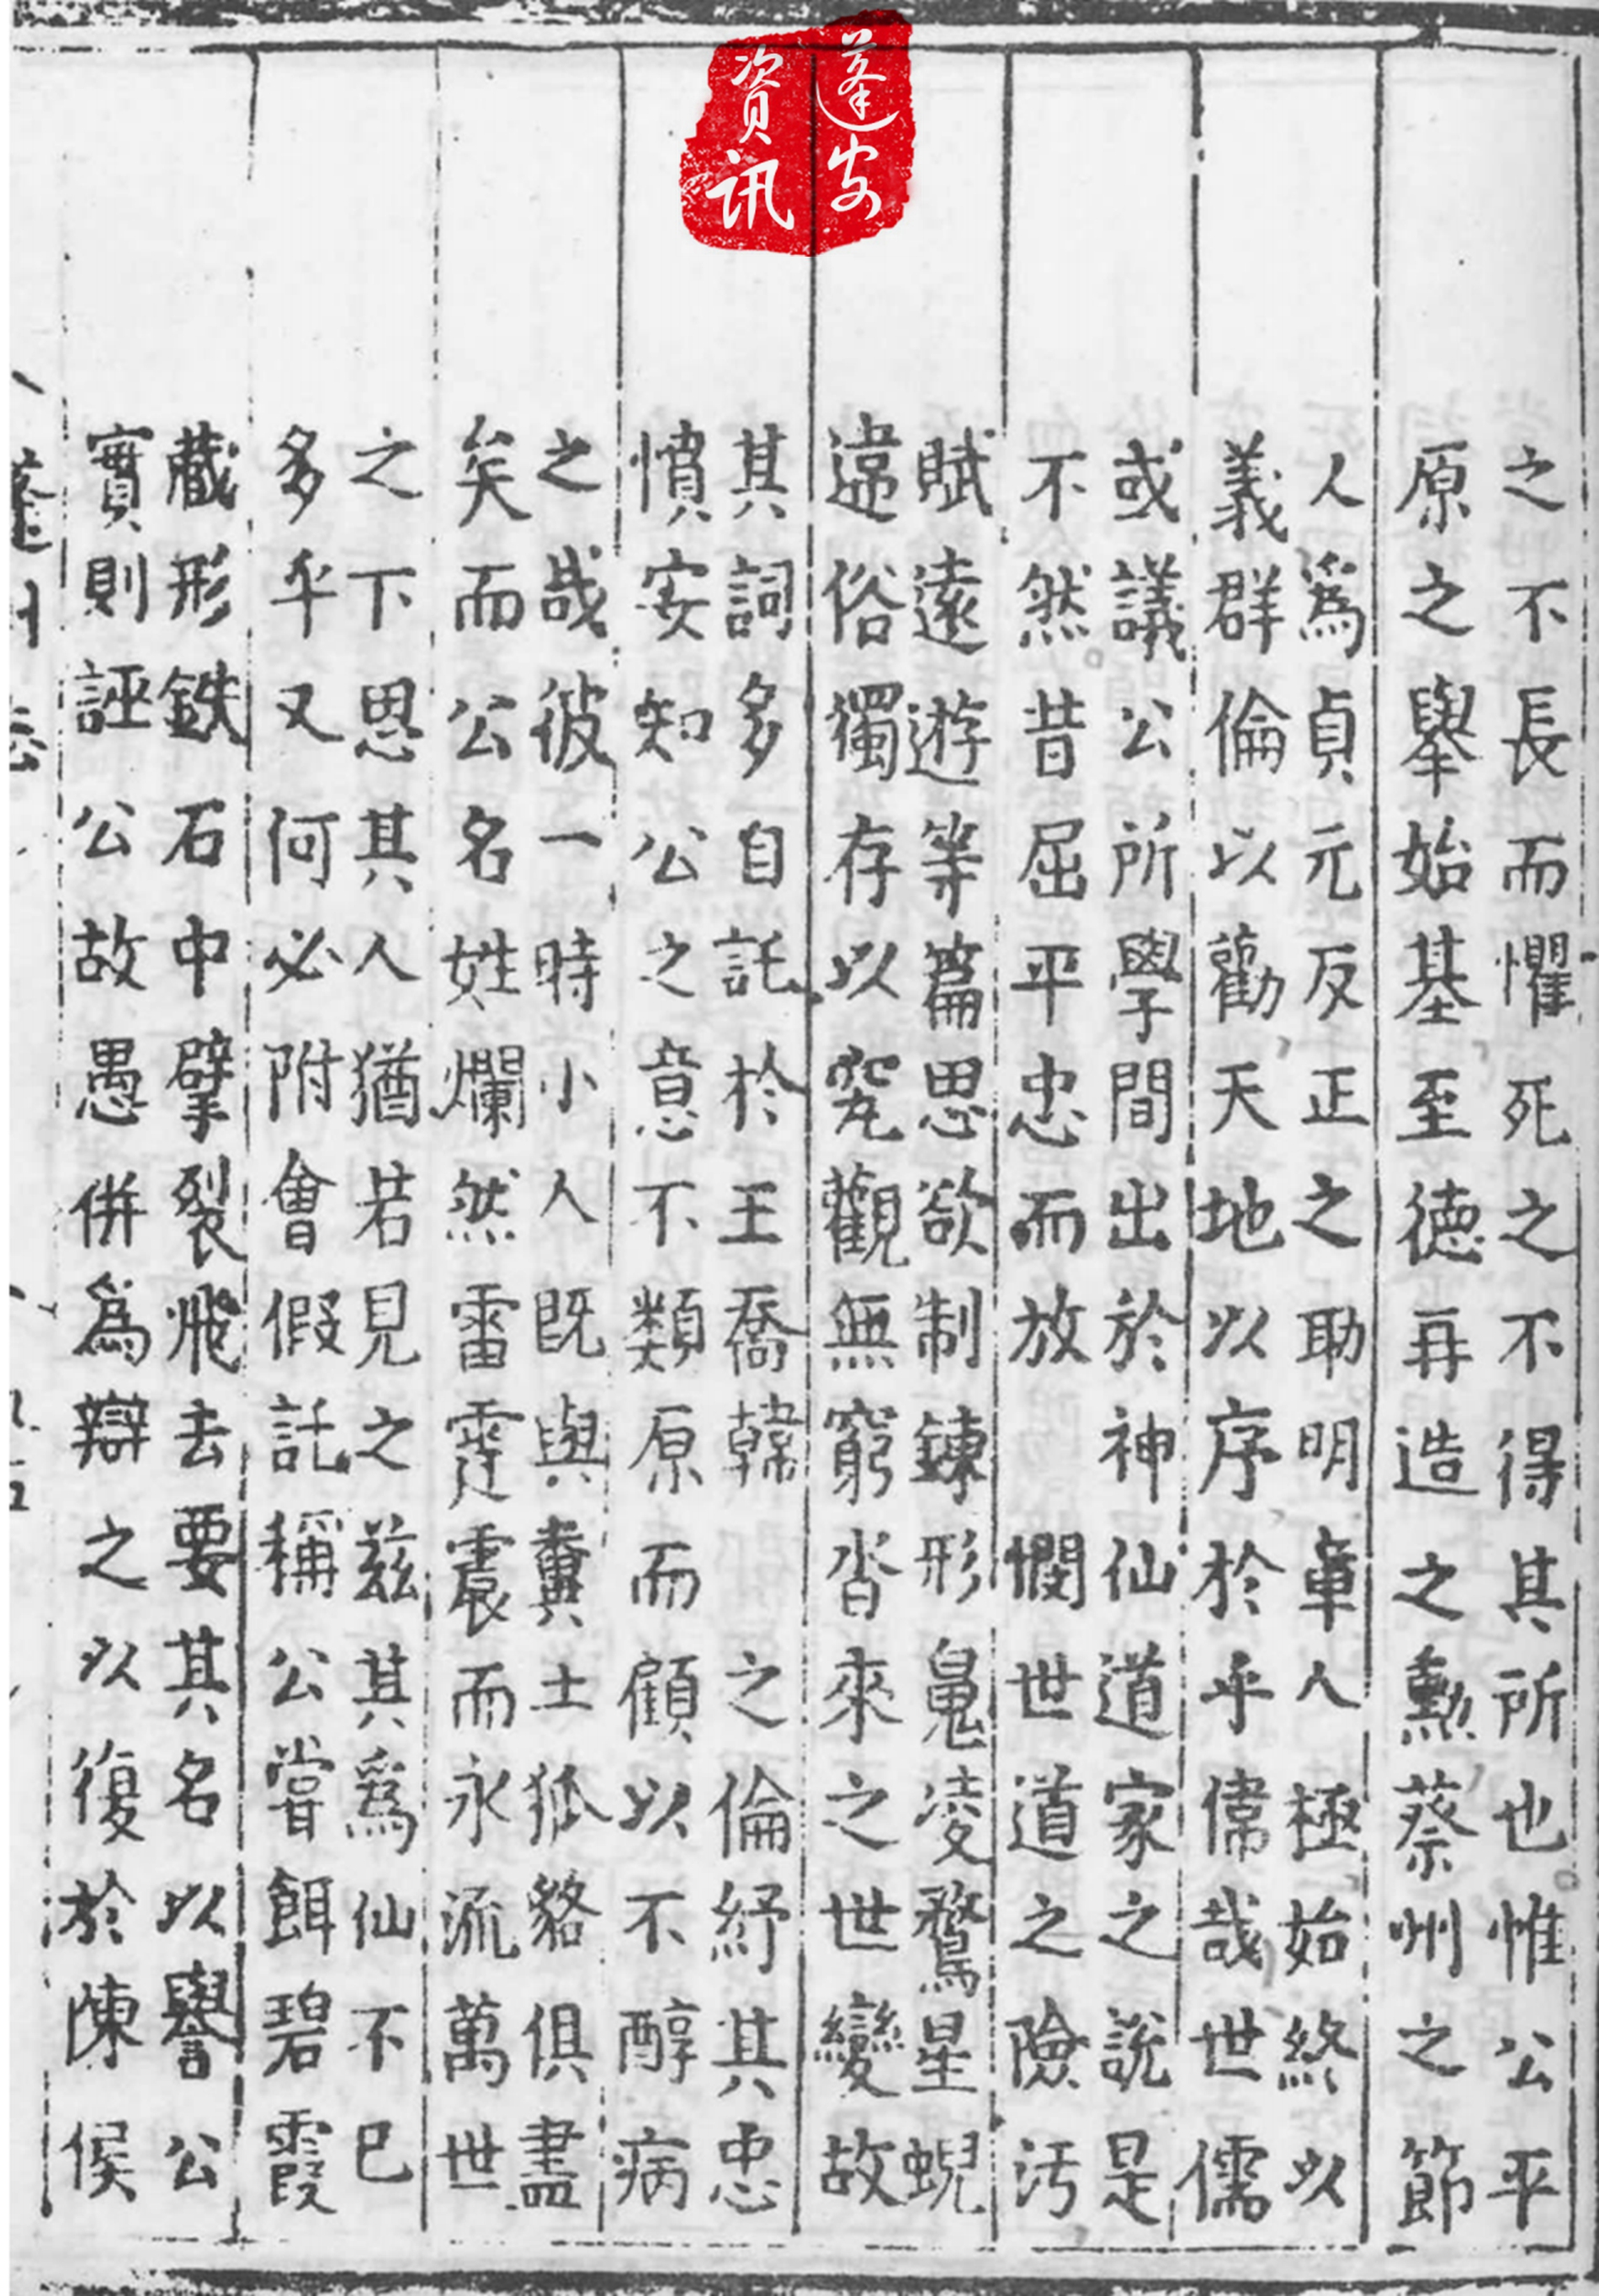 蓬安
資訊
之不長而懼死之不得其所也惟公平
原之舉始基至德再造之勲蔡州之節
人爲貞元反正之助明章人極始終以
義群倫以勸天地以序於乎偉哉世儒
或議公所學間出於神仙道家之說是
不然昔屈平忠而放憫世道之險汚
賦遠遊等篇思欲制鍊形䰟凌騖星蜺
違俗獨存以䆒觀無窮沓來之世變故
其詞多自託於王喬韓之倫紓其忠
憤安知公之意不類原而顧以不醇病
之哉彼一時小人既與糞土狐貉俱盡
矣而公名姓爛然雷霆震而永流萬世
之下思其人猶若見之兹其爲仙不已
多乎又何必附會假託稱公嘗餌碧霞
藏形鉄石中擘裂飛去要其名以譽公
實則誣公故愚併爲辯之以復於陳侯